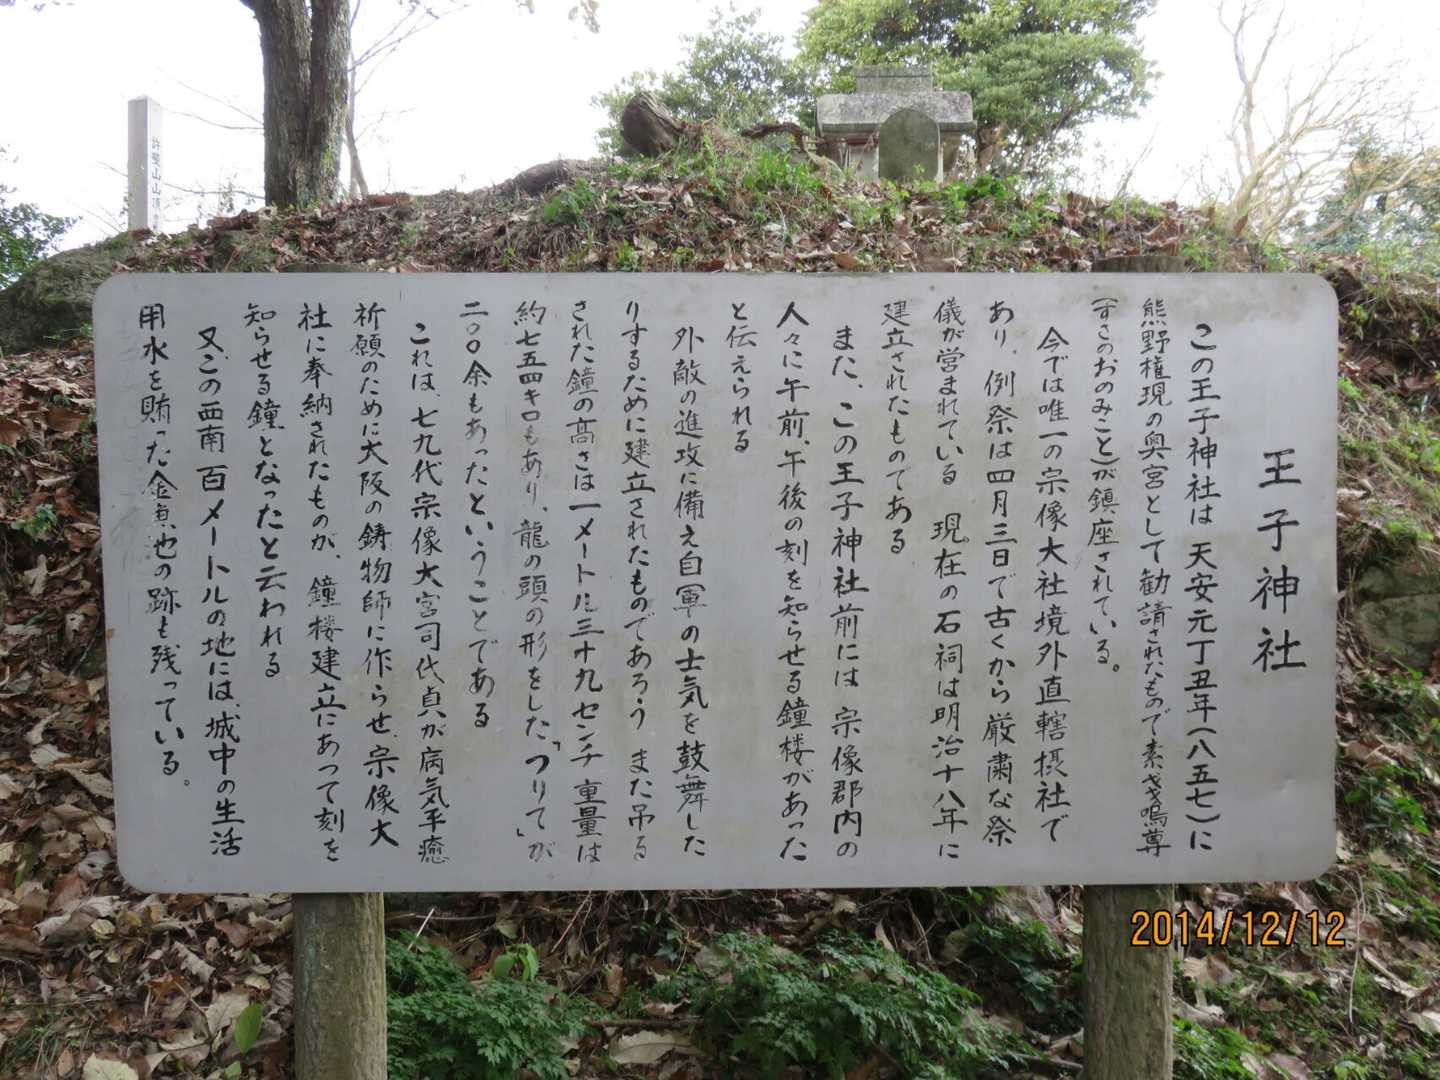 王子神社
この王子神社は 天安元丁丑年(八五七)に
熊野権現の奥宮として勧請されたもので素戔嗚尊
(すさのおのみこと)が鎮座されている。
今では唯一の宗像大社境外直轄摂社で
あり、例祭は四月三日で古くから厳粛な祭
儀が営まれている 現在の石祠は明治十八年に
建立されたものである
また、この王子神社前には宗像郡内の
人々に午前、午後の刻を知らせる鐘楼があった
と伝えられる
外敵の進攻に備え自軍の士気を鼓舞した
りするために建立されたものであろう また吊る
された鐘の高さは一メートル三十九センチ 重量は
約七五四キロもあり、龍の頭の形をした「つりて」が
二〇〇余もあったということである
これは、七九代宗像大宮司氏貞が病気平癒
祈願のために大阪の鋳物師に作らせ、宗像大
社に奉納されたものが、鐘楼建立にあって刻を
知らせる鐘となったと云われる
又、この西南百メートルの地には、城中の生活
用水を賄った金魚池の跡も残っている。
許斐山山頂
2014/12/12